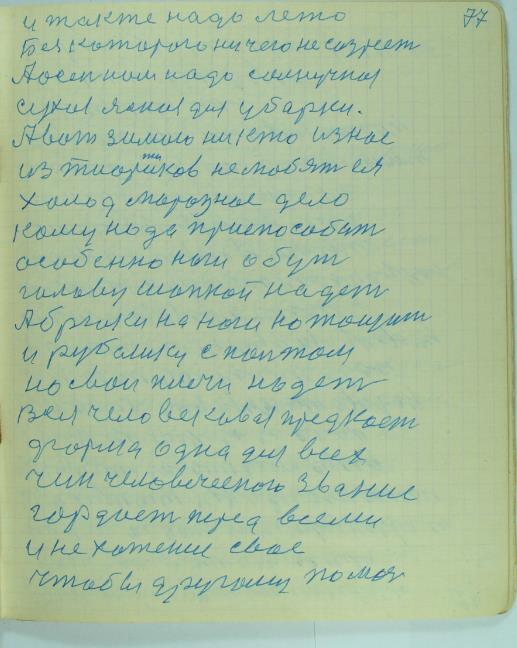 77
и также надо лето
Без которого ничего не созреет
А осенном надо солнучная
сухая ясная для уборки.
А вот зимою никто из нас
из тиоретиков не любят ея
холод морозное дело
кому нада приспособит
особенно ноги обут
голову шапкой надет
А брюки на ноги
и рубашку с
на свои плечи надет
Вся человекова
форма одна для всех
чин человеческого звание
гордост перед всеми
и не хотение свое
чтобы другому помоч